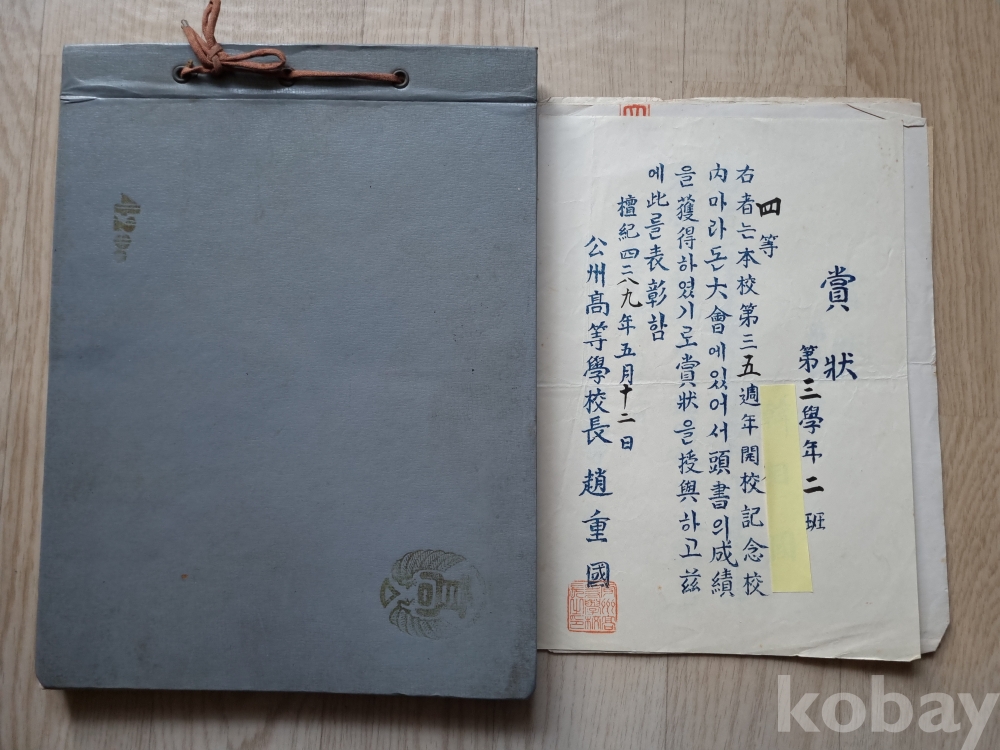 賞狀
第三學年二班
四等
右者는本校第三五週年開校記念校
內마라돈大會에있어서頭書의成績
을獲得하였기로賞狀을授與하고玆
에此를表彰함
檀紀四二八九年五月十二日
公州高等學校長 趙重國
高
kobay